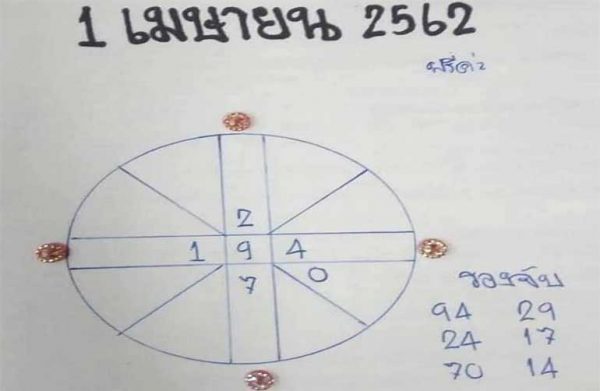 1 เมษายน 2562
2
1 9 4
7 0
รองจับ
94 29
24 17
70 14